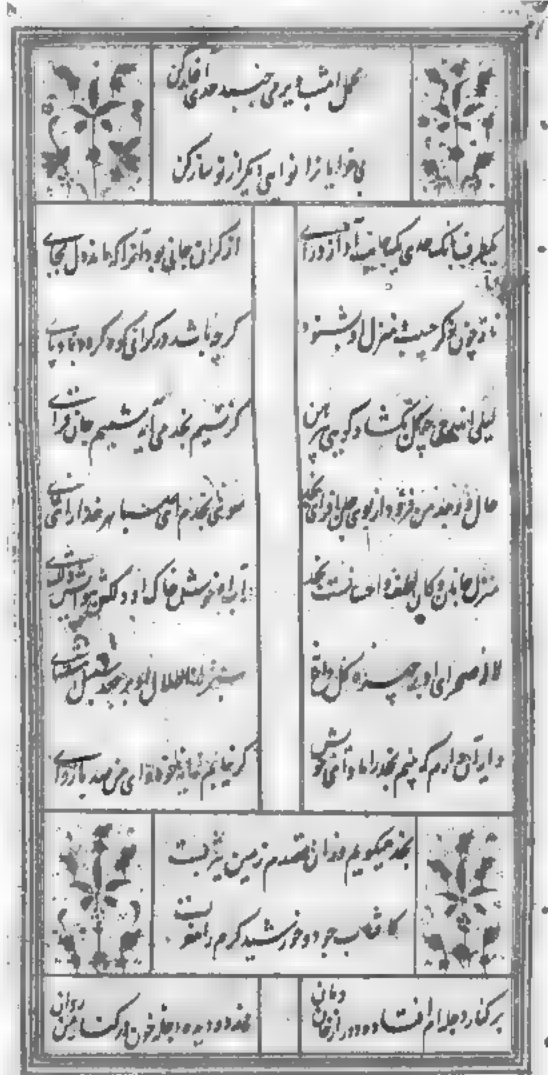 محمل امشب دیر می جنبد حدی آغاز کن
بی نوایانرا نوایی دیگر از نو ساز کن
یکطرف بانگ حدی یکجانب آواز درای از گران جانی بود آنرا که ماند دل بجای
ناقه چون ذکر حبیب و منزل او بشنود گرچه باشد در گرانی کوه گردد بادپای
لیلی اندر حی بگشاد گویی پیرهن کز نسیم نجد می آید شمیم جان فزای
حال وجد من فزود از بوی جان افزای نجد سوی نجدم ای صبا بهر خدا راهی نمای
منزل جانان و کان لطف و احسانست نجد آب او خوش خاک او دلکش هوایش دلگشای
لاله صحرای او بر چهره گل داغ سبزه اطلال او بر جعد سنبل مشکسای
آن دارم که بینم نجد را مأوای خویش گر نیابم وای من صد بار وای
نجد میگویم وزان مقصدم زمین یثربست
کافتاب جود و خورشید کرم را مغربست
بر کنار دجله ام افتاده دور از خان و مان وز دو دیده دجله خون در کنار من روان